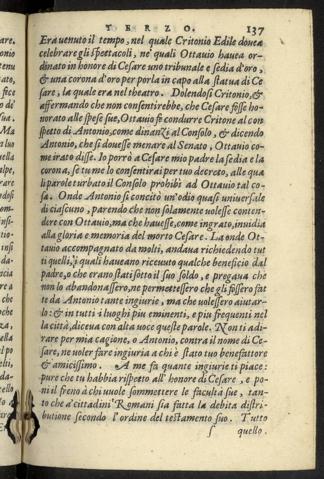 TERZO. 137
Era venuto il tempo, nel quale Critonio Edile douea
celebrare gli spettacoli, ne' quali Ottauio hauea or-
dinato in honore di Cesare uno tribunale e sedia d'oro,
& una corona d'oro per porla in capo alla statua di Ce
sare, la quale era nel theatro. Dolendosi Critonio, &
affermando che non consentirebbe, che Cesare fosse ho-
norato alle spese sue, Ottauio fè condurre Critone al con
spetto di Antonio, come dinanzi al Consolo, & dicendo
Antonio, che si douesse menare al Senato, Ottauio co-
me irato disse. Io porrò a Cesare mio padre la sedia e la
corona, se tu me lo consentirai per tuo decreto, alle qua
li parole turbato il Consolo prohibì ad Ottauio tal co-
sa. Onde Antonio si concitò un'odio quasi uniuersale
di ciascuno, parendo che non solamente uolesse conten-
dere con Ottauio, ma che hauesse, come ingrato, inuidia
alla gloria e memoria del morto Cesare. La onde Ot-
tauio accompagnato da molti, andaua richiedendo tut
ti quelli, i quali haueano riceuuto qualche beneficio dal
padre, o che erano stati sotto il suo soldo, e pregaua che
non lo abandonassero, ne permettessero che gli fossero fat
te da Antonio tante ingiurie, ma che uolessero aiutar-
lo: & in tutti i luoghi piu eminenti, e piu frequenti nel
la città, diceua con alta uoce queste parole. Non ti adi-
rare per mia cagione, o Antonio, contra il nome di Ce-
sare, ne uoler fare ingiuria a chi è stato tuo benefattore
& amicissimo. A me fa quante ingiurie ti piace:
pure che tu habbia rispetto all'honore di Cesare, e po-
ni il freno à chi uuole sommettere le facultà sue, tan-
to che a' cittadini Romani sia fatta la debita distri-
butione secondo l'ordine del testamento suo. Tutto
s quello.